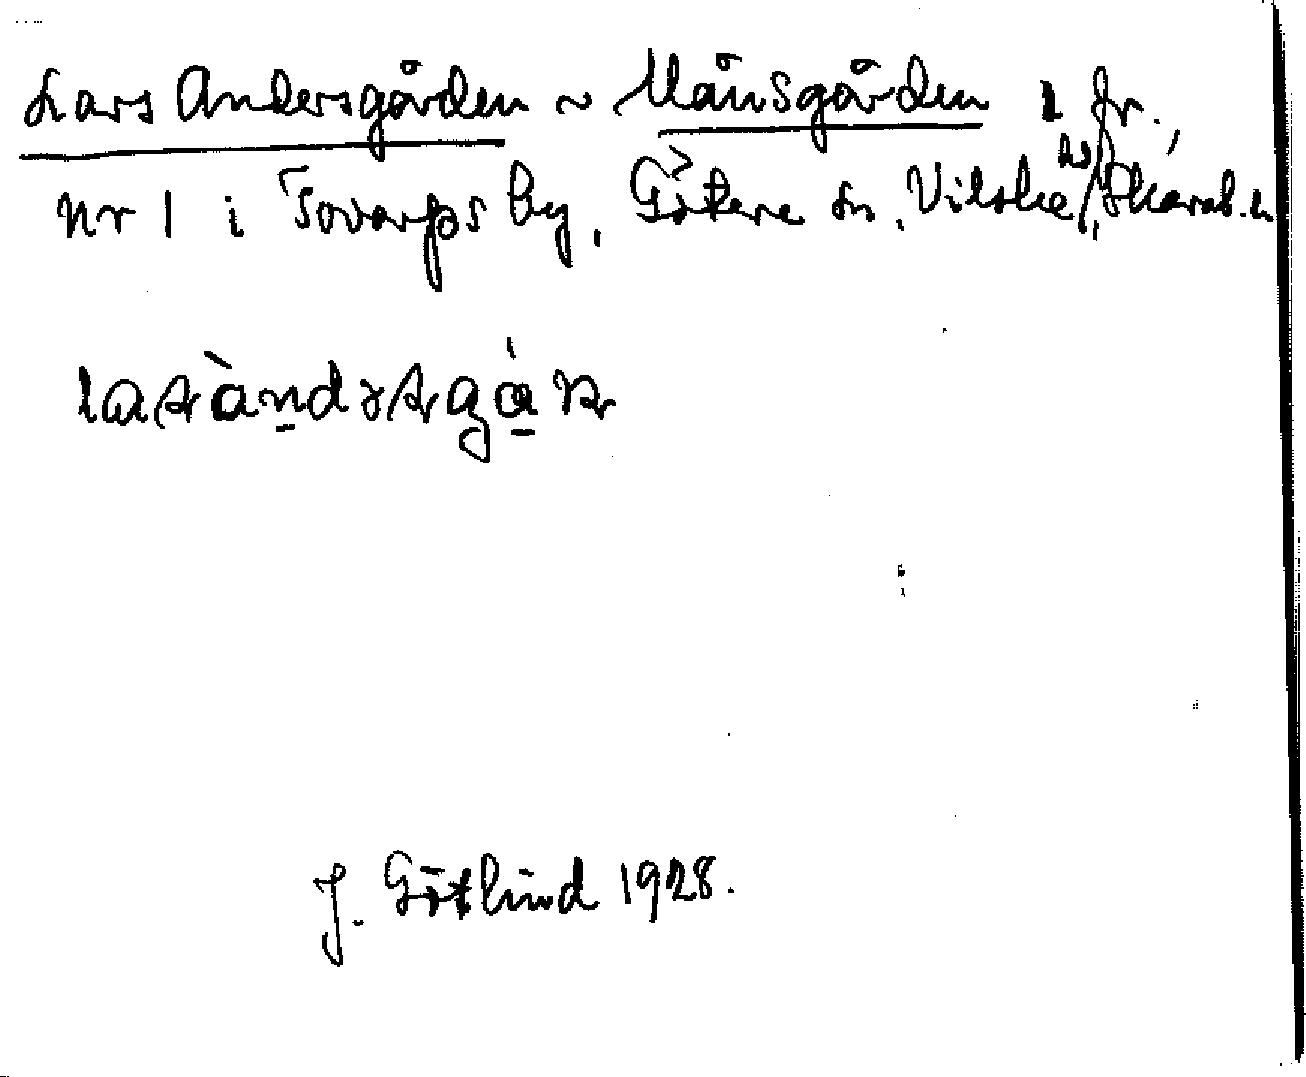 Lars Andersgården ~ Månsgården 1 fr.,
Nr 1 i Tovarps by, Götene sn, Vilske hd, Skarab. l.
J. Götlind 1928.